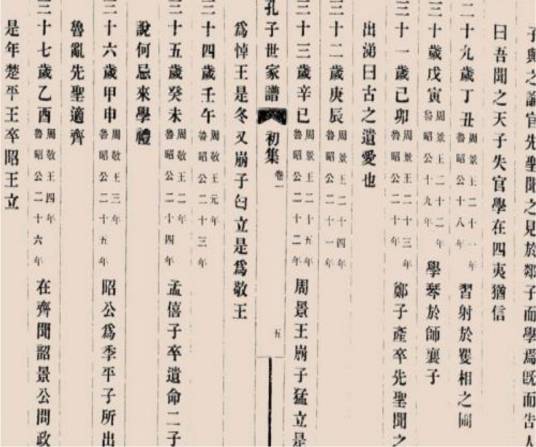 子與之論官先聖聞之見於郯子而學焉既而告人
曰吾聞之天子失官學在四夷猶信
二十九歲丁丑周景王二十一年魯昭公十八年習射於矍相之圃
三十歲戊寅周景王二十二年魯昭公十九年學琴於師襄子
三十一歲己卯周景王二十三年魯昭公二十年鄭子產卒先聖聞之
出涕曰古之遺愛也
三十二歲庚辰周景王二十四年魯昭公二十一年
三十三歲辛巳周景王二十五年魯昭公二十二年周景王崩子猛立是
孔子世家譜 初集 卷一 五
為悼王是冬又崩子匄立是為敬王
三十四歲壬午周敬王元年魯昭公二十三年
三十五歲癸未周敬王二年魯昭公二十四年孟僖子卒遺命二子
說何忌來學禮
三十六歲甲申周敬王三年魯昭公二十五年昭公為季平子所出
魯亂先聖適齊
三十七歲乙酉周敬王四年魯昭公二十六年在齊聞韶景公問政
是年楚平王卒昭王立